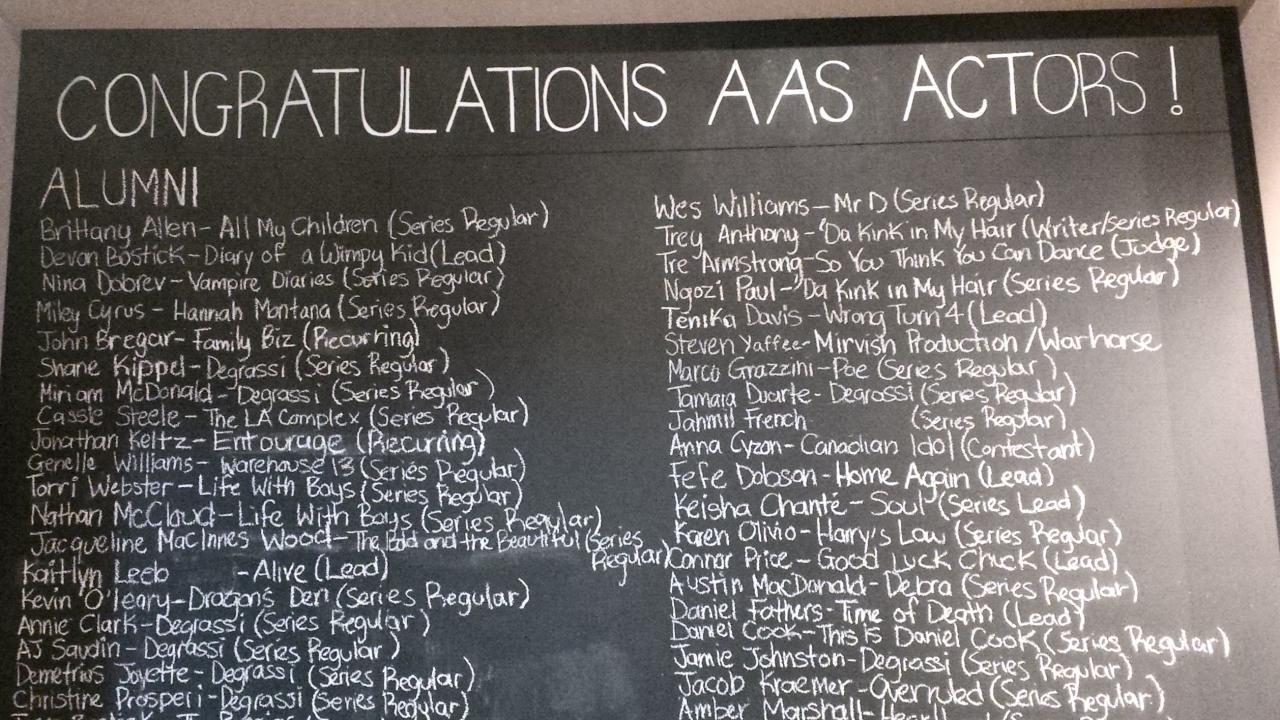 CONGRATULATIONS AAS ACTORS!
ALUMNI
Brittany Allen - All My Children (Series Regular)
Devon Bostick - Diary of a Wimpy Kid (Lead)
Nina Dobrev - Vampire Diaries (Series Regular)
Miley Cyrus - Hannah Montana (Series Regular)
John Bregar - Family Biz (Recurring)
Shane Kippel - Degrassi (Series Regular)
Miriam McDonald - Degrassi (Series Regular)
Cassie Steele - The LA Complex (Series Regular)
Jonathan Keltz - Entourage (Recurring)
Genelle Williams - Warehouse 13 (Series Regular)
Torri Webster - Life With Boys (Series Regular)
Nathan McCloud - Life With Boys (Series Regular)
Jacqueline MacInnes Wood - The Bold and the Beautiful (Series
Regular)
Kaitlyn Leeb - Alive (Lead)
Kevin O'leary - Dragons Den (Series Regular)
Annie Clark - Degrassi (Series Regular)
AJ Saudin - Degrassi (Series Regular)
Demetrius Joyette - Degrassi (Series Regular)
Christine Prosperi - Degrassi (Series Regular)
Wes Williams - Mr D (Series Regular)
Trey Anthony - 'Da Kink in My Hair (Writer/Series Regular)
Tre Armstrong - So You Think You Can Dance (Judge)
Ngozi Paul - 'Da Kink in My Hair (Series Regular)
Tenika Davis - Wrong Turn 4 (Lead)
Steven Yaffee - Mirvish Production / Warhorse
Marco Grazzini - Poe (Series Regular)
Tamara Duarte - Degrassi (Series Regular)
Jahmil French (Series Regular)
Anna Cyzon - Canadian Idol (Contestant)
Fefe Dobson - Home Again (Lead)
Keisha Chanté - Soul (Series Lead)
Karen Olivio - Harry's Law (Series Regular)
Connor Price - Good Luck Chuck (Lead)
Austin MacDonald - Debra (Series Regular)
Daniel Fathers - Time of Death (Lead)
Daniel Cook - This Is Daniel Cook (Series Regular)
Jamie Johnston - Degrassi (Series Regular)
Jacob Kraemer - Overruled (Series Regular)
Amber Marshall -